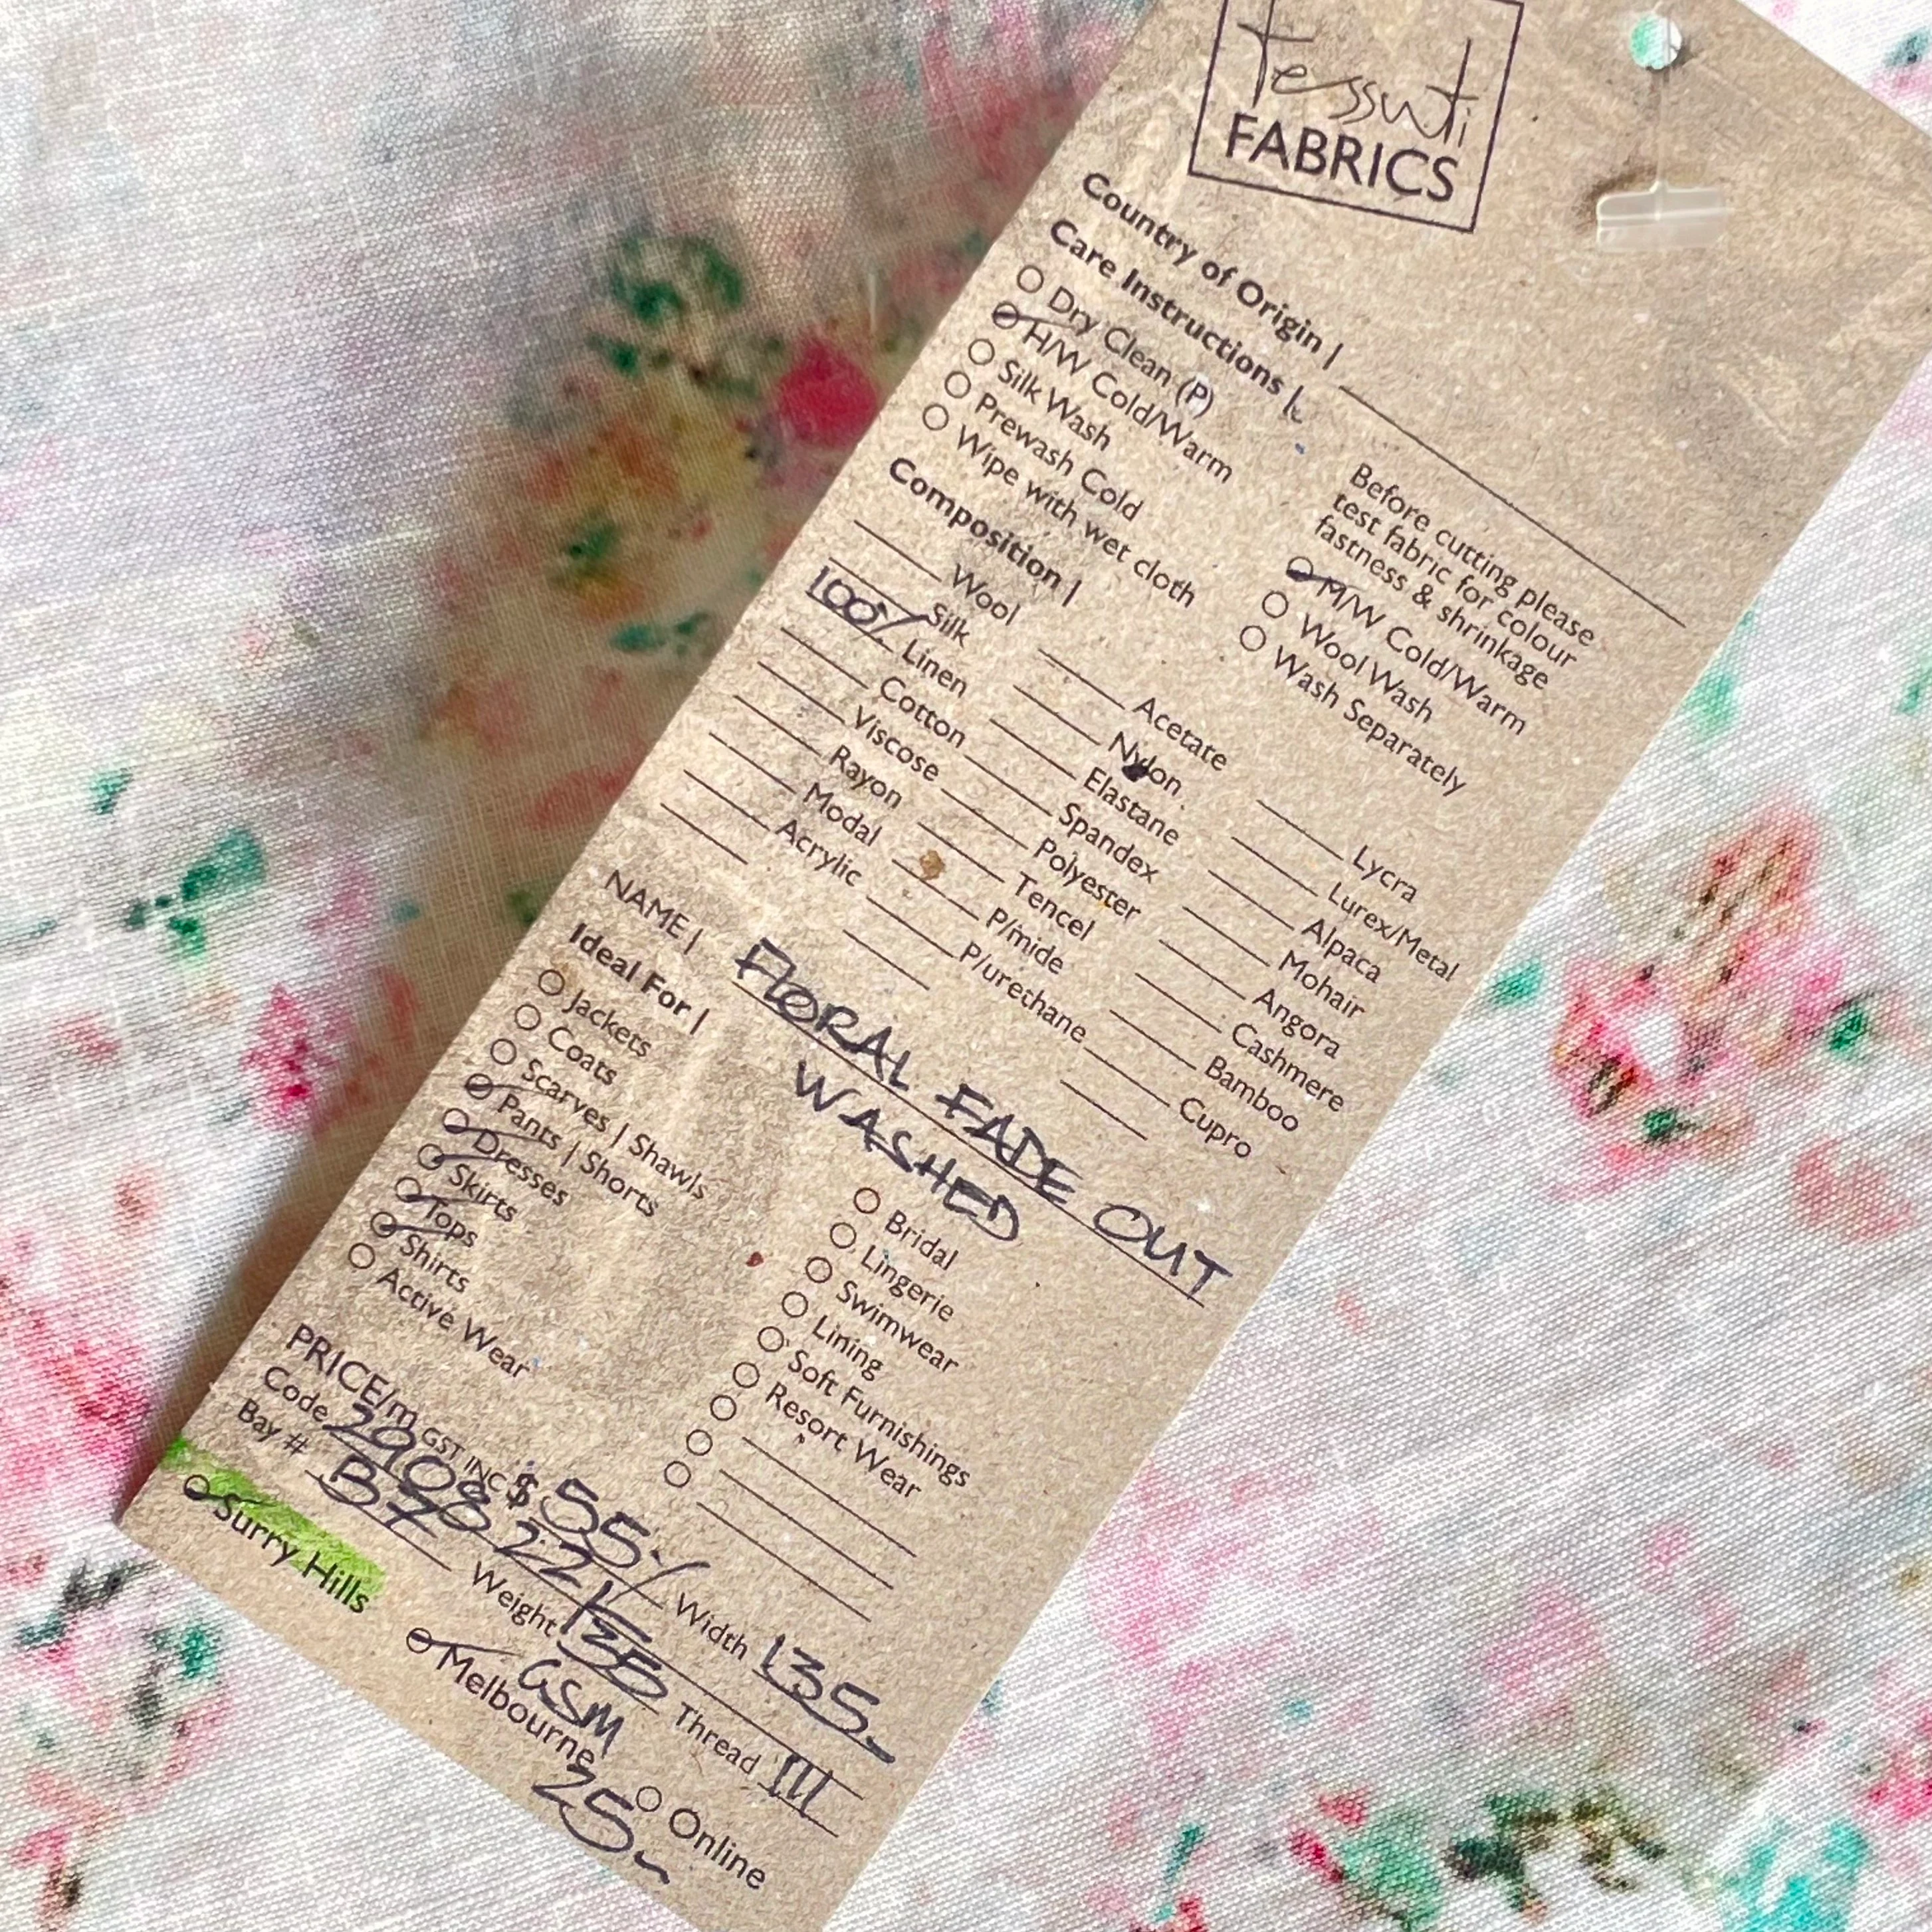 tessuti
FABRICS
Country of Origin |
Care Instructions |
Dry Clean (P)
H/W Cold/Warm
Silk Wash
Prewash Cold
Wipe with wet cloth
Before cutting please
test fabric for colour
fastness & shrinkage
M/W Cold/Warm
Wool Wash
Wash Separately
Composition |
Wool
Silk
100% Linen
Cotton
Viscose
Rayon
Modal
Acrylic
Acetate
Nylon
Elastane
Spandex
Polyester
Tencel
P/mide
P/urethane
Lycra
Lurex/Metal
Alpaca
Mohair
Angora
Cashmere
Bamboo
Cupro
NAME | FLORAL FADE OUT
WASHED
Ideal For |
Jackets
Coats
Scarves | Shawls
Pants | Shorts
Dresses
Skirts
Tops
Shirts
Active Wear
Bridal
Lingerie
Swimwear
Lining
Soft Furnishings
Resort Wear
PRICE/m GST INC $ 55 Width 135
Code 2908 221 Thread 111
Bay # B7 Weight
GSM
Surry Hills
Melbourne
Online
25